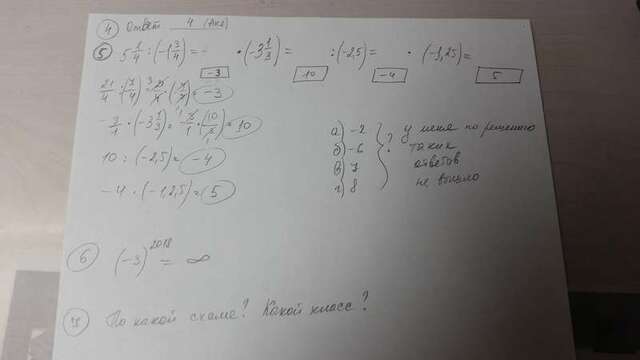 4 Ответ 4 (Аке)
5 5 1/4 : (-1 3/4) = - · (-3 1/3) = : (-2,5) = · (-1,25) =
-3 10 -4 5
21/4 : (7/4) = -3
-3/1 · (-3 1/3) = -3/1 · (10/3) = 10
10 : (-2,5) = -4
-4 · (-1,2,5) = 5
а) -2 } ? у меня по решению
б) -6 таких
в) 7 ответов
г) 8 не вышло
6 (-3)^2018 = ∞
7 По какой схеме? Какой класс?